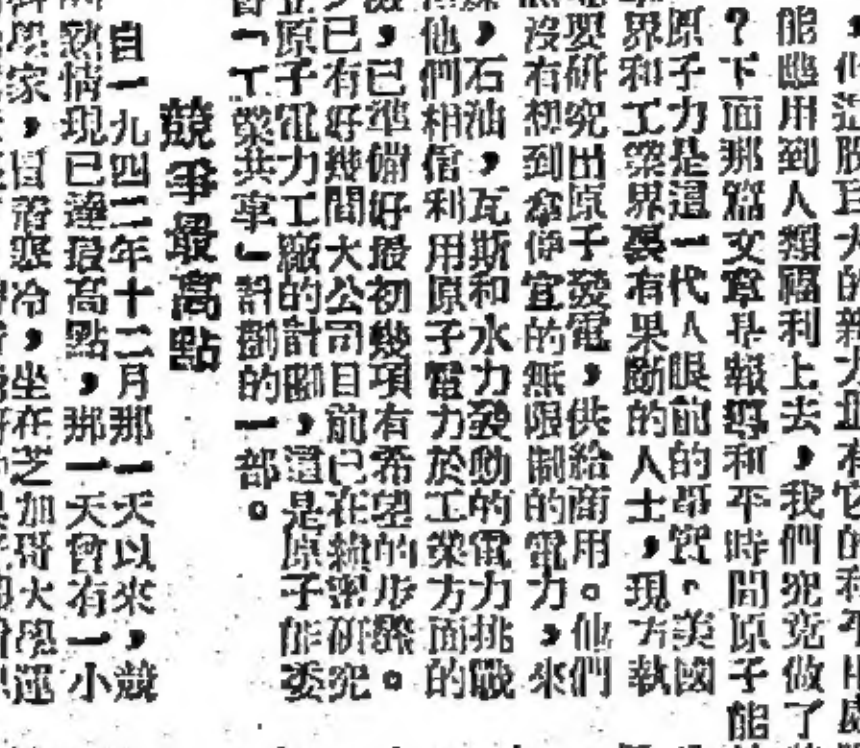 能應用到人類福利上去，我們究竟做了
？下面那篇文章是報導和平時間原子能
原子力是這一代人眼前的現實。美國
界和工業界具有果斷的人士，現方執
要研究出原子發電，供給商用。他們
沒有想到拿便宜的無限制的電力，來
，石油，瓦斯和水力發動的電力挑戰
他們相信利用原子電力於工業方面的
，已準備好最初幾項有希望的步驟。
已有好幾間大公司目前已在縝密研究
原子電力工廠的計劃，還是原子能委
「工業共享」計劃的一部。
競爭最高點
自一九四二年十二月那一天以來，競
熱情現已達最高點，那一天曾有一小
家，冒着寒冷，坐在芝加哥大學運